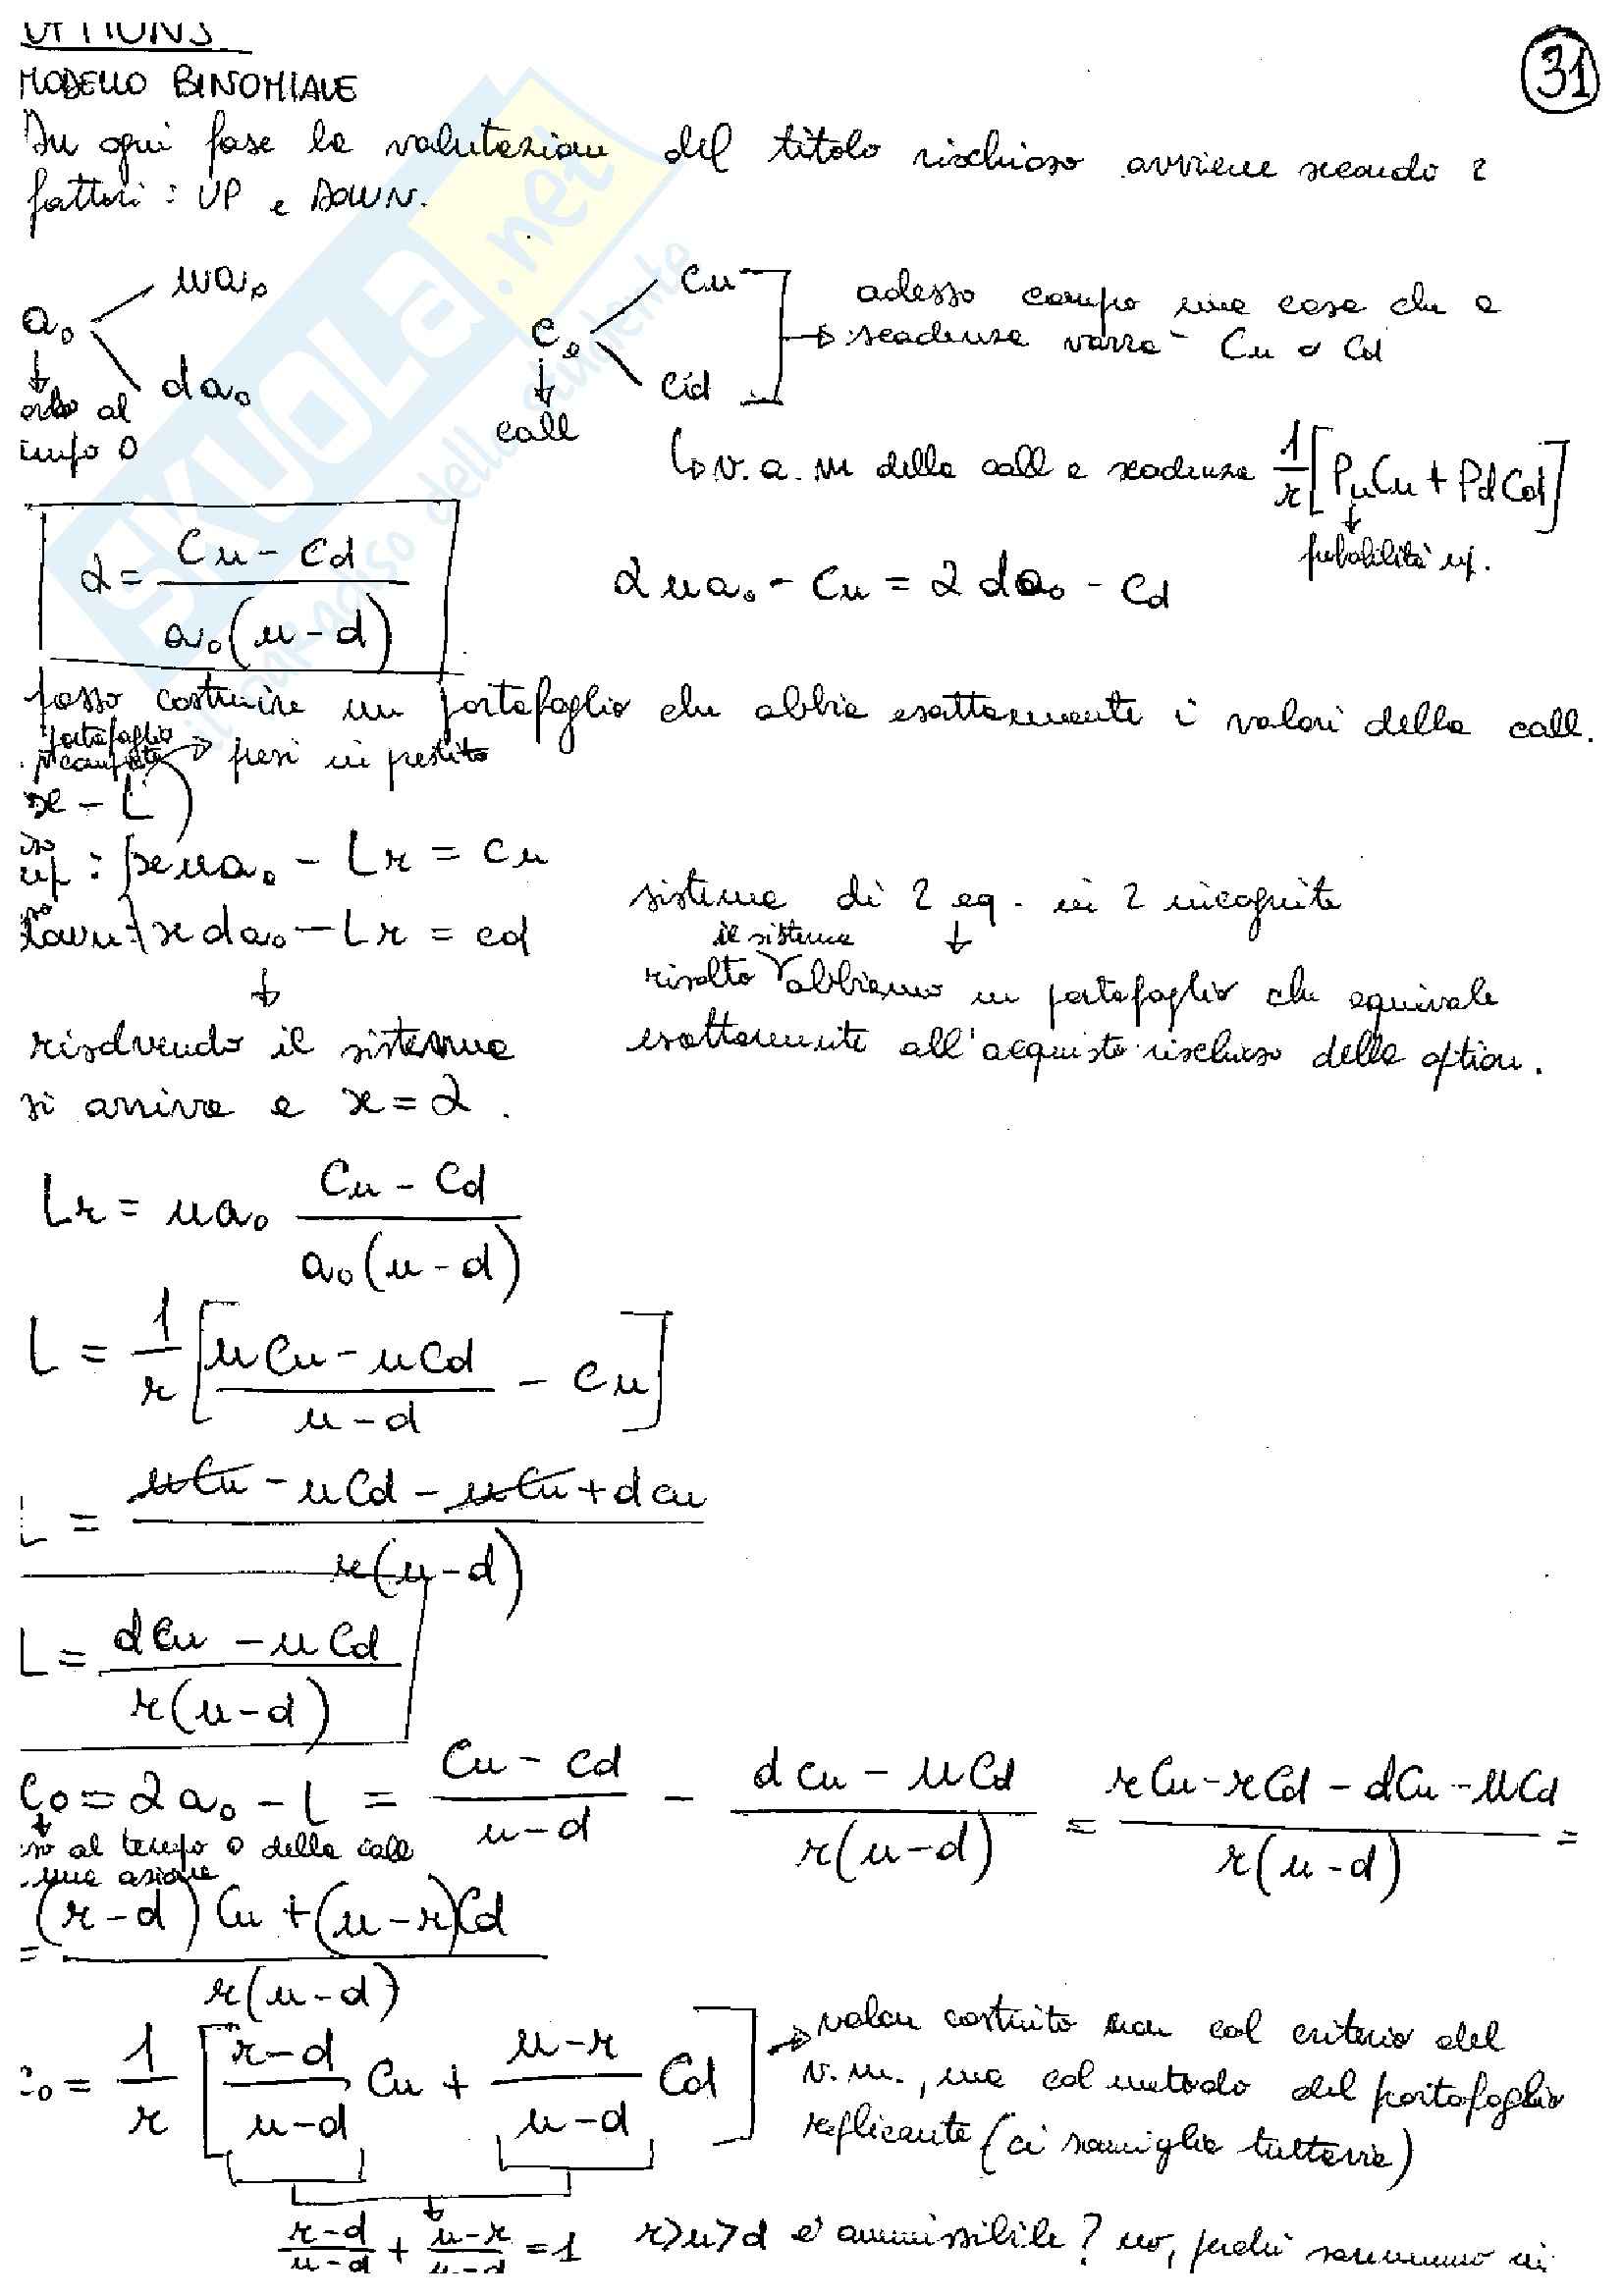 OPTIONS
31
MODELLO BINOMIALE
In ogni fase la valutazione del titolo rischioso avviene secondo 2
fattori: UP e DOWN.
a₀ ua₀ da₀
c₀ Cu Cd
adesso compro una cosa che a
scadenza varrà Cu o Cd
al
tempo 0
call
v.a.m della call a scadenza 1/r [PuCu + PdCd]
probabilità up.
α = (Cu - Cd) / (a₀(u-d))
αua₀ - Cu = αda₀ - Cd
posso costruire un portafoglio che abbia esattamente i valori della call.
portafoglio
presi in prestito
x - L
up: xua₀ - Lr = Cu
down xda₀ - Lr = Cd
sistema di 2 eq. in 2 incognite
il sistema
risolto abbiamo un portafoglio che equivale
esattamente all'acquisto rischioso della option.
risolvendo il sistema
si arriva a x = α.
Lr = ua₀ (Cu - Cd) / (a₀(u-d))
L = 1/r [(uCu - uCd) / (u-d) - Cu]
L = (uCu - uCd - uCu + dCu) / (r(u-d))
L = (dCu - uCd) / (r(u-d))
C₀ = αa₀ - L = (Cu - Cd) / (u-d) - (dCu - uCd) / (r(u-d)) = (rCu - rCd - dCu - uCd) / (r(u-d)) =
al tempo 0 della call
una azione
= ((r-d)Cu + (u-r)Cd) / (r(u-d))
C₀ = 1/r [(r-d)/(u-d) Cu + (u-r)/(u-d) Cd]
valore costruito non col criterio del
v.m., ma col metodo del portafoglio
replicante (ci somiglia tuttavia)
(r-d)/(u-d) + (u-r)/(u-d) = 1 r>u>d è ammissibile? no, perché saremmo in
SKUOLA.net
il paradiso dello studente